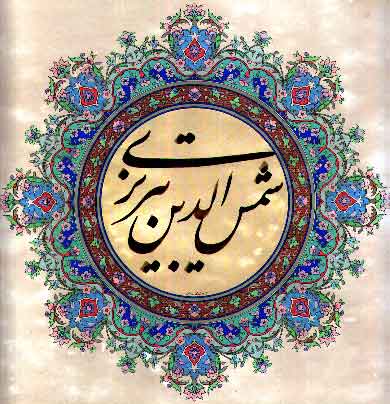 شمس الدین تبریزی